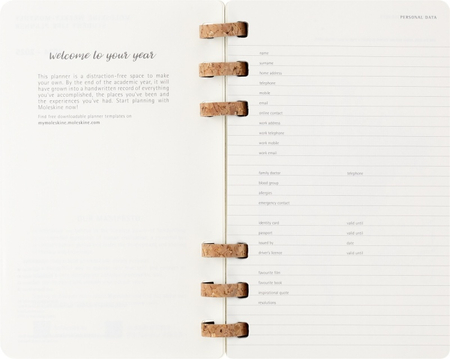 welcome to your year
This planner is a distraction-free space to make
your own. By the end of the academic year, it will
have grown into a handwritten record of everything
you've accomplished, the places you've been and
the experiences you've had. Start planning with
Moleskine now!
Find free downloadable planner templates on
mymoleskine.moleskine.com
PERSONAL DATA
name
surname
home address
telephone
mobile
email
online contact
work address
work telephone
work mobile
work email
family doctor telephone
blood group
allergies
emergency contact
identity card valid until
passport valid until
issued by date
driver's licence valid until
favourite film
favourite book
inspirational quote